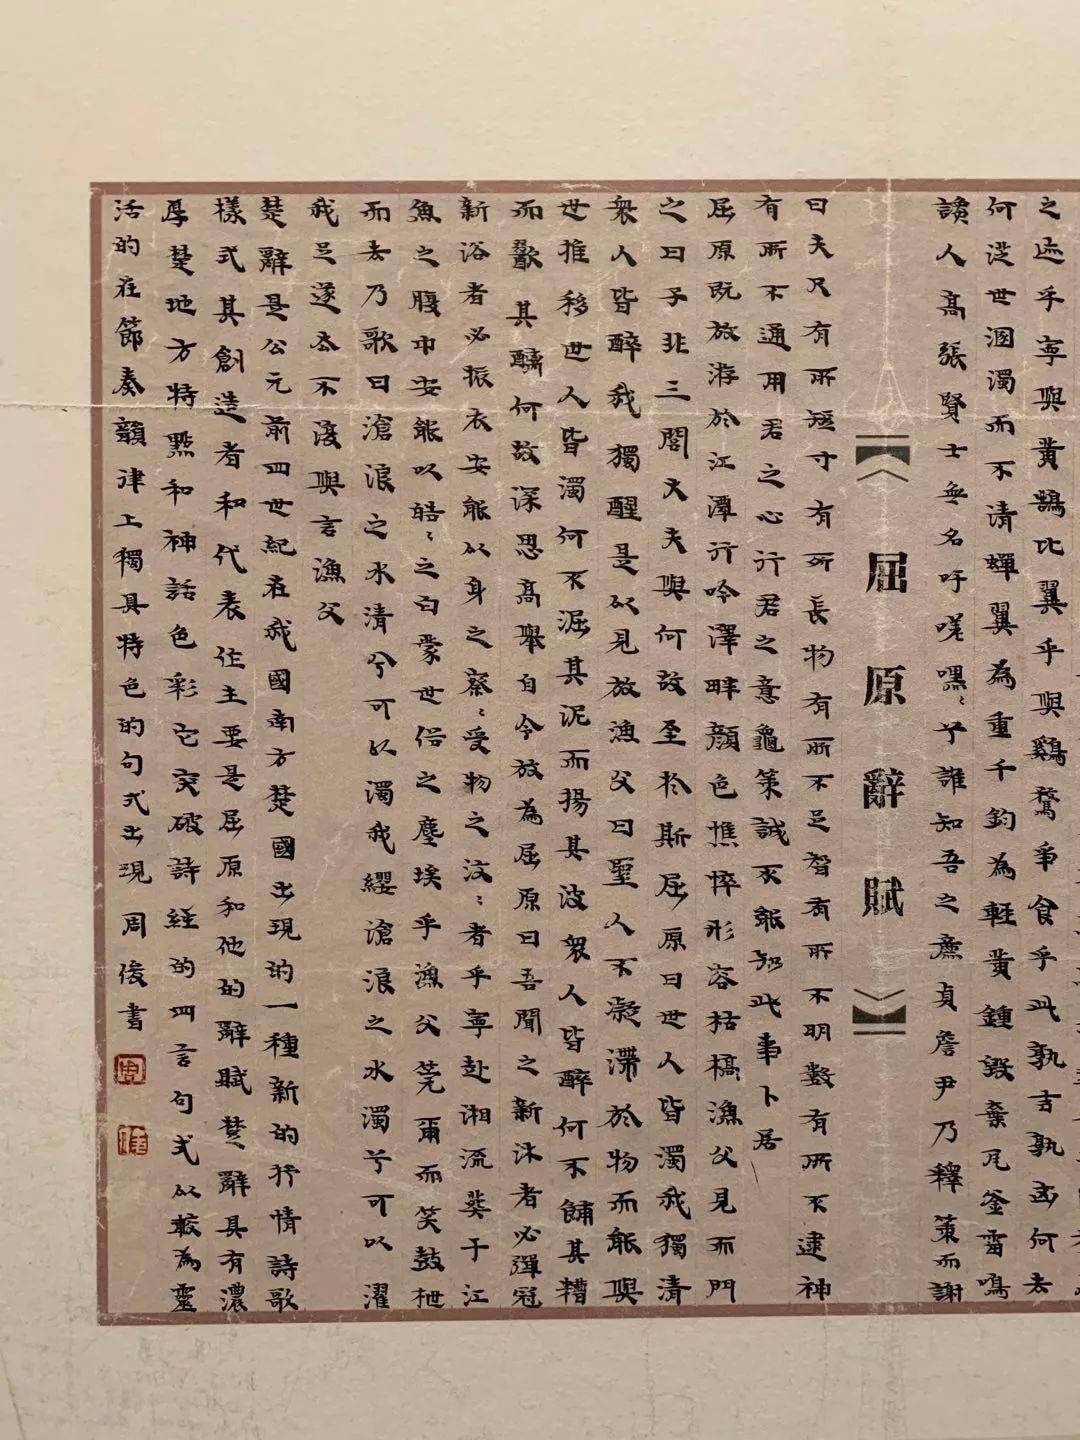 之迹乎寧與黄鵠比翼乎與鷄鶩爭食乎此孰吉孰凶何去
何従世溷濁而不清蟬翼為重千鈞為軽黄鍾毀棄瓦釜雷鳴
讒人高張賢士無名吁嗟嘿〻乎誰知吾之廉貞詹尹乃釋策而謝
屈原辭賦
曰夫尺有所短寸有所長物有所不足智有所不明數有所不逮神
有所不通用君之心行君之意龜策誠不能知此事卜居
屈原既放游於江潭行吟澤畔顔色憔悴形容枯槁漁父見而門
之曰子非三閭大夫與何故至於斯屈原曰世人皆濁我獨清
衆人皆醉我獨醒是以見放漁父曰聖人不凝滯於物而能與
世推移世人皆濁何不淈其泥而揚其波衆人皆醉何不餔其糟
而歠其醨何故深思高舉自令放為屈原曰吾聞之新沐者必彈冠
新浴者必振衣安能以身之察〻受物之汶〻者乎寧赴湘流葬于江
魚之腹中安能以皓〻之白蒙世俗之塵埃乎漁父莞爾而笑鼓枻
而去乃歌曰滄浪之水清兮可以濁我纓滄浪之水濁兮可以濯
我足遂去不復與言漁父
楚辭是公元前四世紀在我國南方楚國出現的一種新的抒情詩歌
樣式其創造者和代表作主要是屈原和他的辭賦楚辭具有濃
厚楚地方特點和神話色彩它突破詩經的四言句式以較為靈
活的在節奏韻律上獨具特色的句式出現周俊書